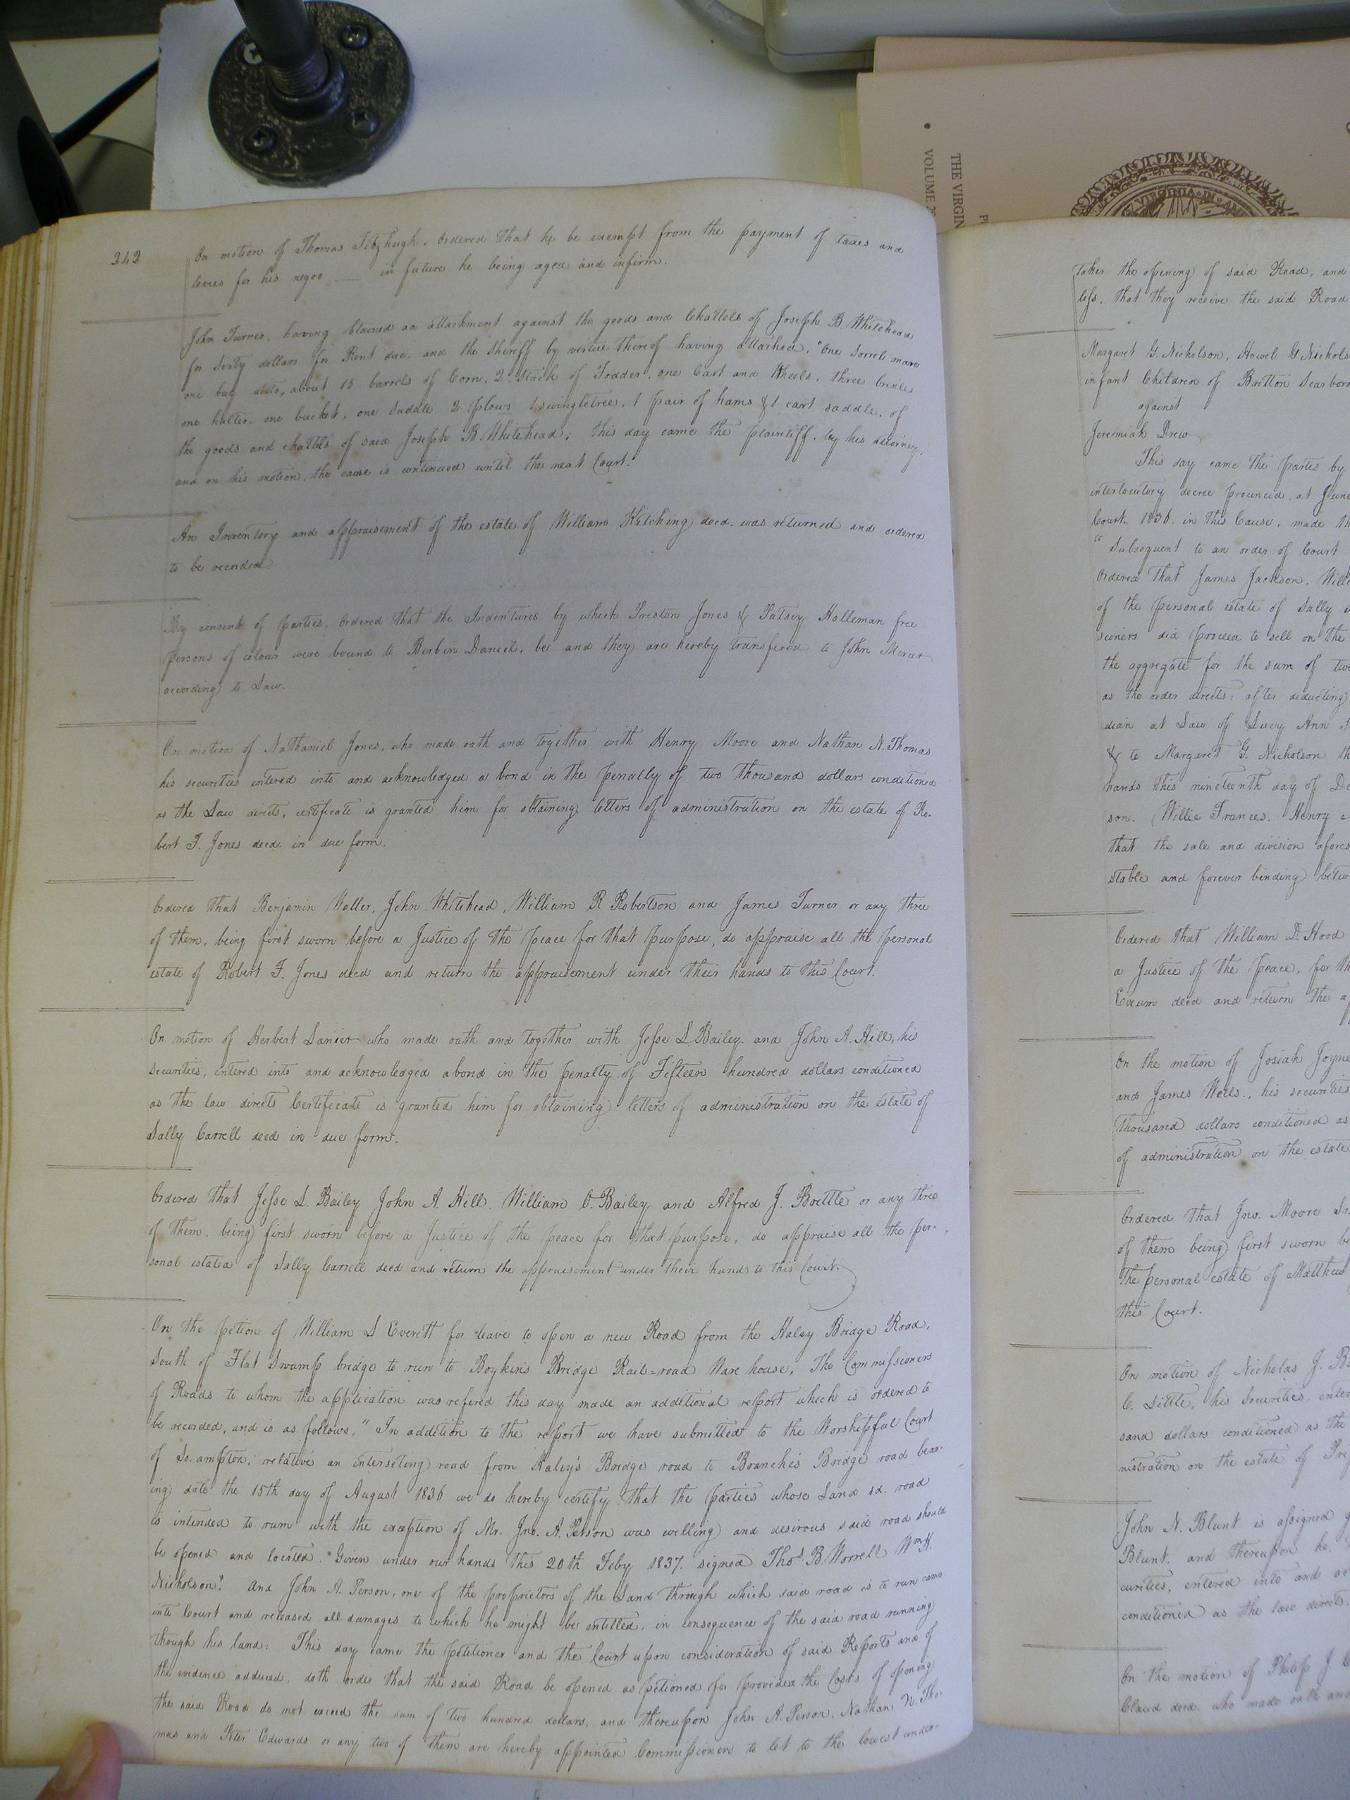 THE VIRGIN
VOLUME 7
VIRGINIA IN AM
242
On motion of Thomas Fitzhugh. Ordered that he be exempt from the payment of taxes and
levies for his negro ___ in future he being aged and infirm.
John Turner, having obtained an attachment against the goods and Chattels of Joseph B. Whitehead
for Sixty dollars for Rent due, and the Sheriff by virtue thereof having attached, "One Sorrel mare
one bay about 15 barrels of Corn, 2 Stack of Fodder, one Cart and Wheels, three
one halter, one bucket, one Saddle 2 plows 1 swingletree, 1 pair of hams & 1 cart saddle, of
the goods and chattels of said Joseph B. Whitehead, this day came the plaintiff, by his attorney,
and on his motion, the cause is continued until the next Court.
An Inventory and appraisement of the estate of William Kitching decd. was returned and ordered
to be recorded
By consent of parties. Ordered that the Indentures by which Preston Jones & Patsey Holleman free
persons of colour were bound to Daniel, be and they are hereby transfered to John
according to Law.
On motion of Nathaniel Jones, who made oath and together with Henry Moore and Nathan N. Thomas
his securities entered into and acknowledged a bond in the penalty of two thousand dollars conditioned
as the Law directs, certificate is granted him for obtaining letters of administration on the estate of Ro-
bert F. Jones decd. in due form.
Ordered that Benjamin Waller, John Whitehead, William R Robertson and James Turner or any three
of them, being first sworn before a Justice of the peace for that purpose, do appraise all the personal
estate of Robert F. Jones decd and return the appraisement under their hands to this Court.
On motion of Herbert Lanier who made oath and together with Jesse L Bailey and John A. Hill, his
securities, entered into and acknowledged a bond in the penalty of Fifteen hundred dollars conditioned
as the law directs Certificate is granted him for obtaining letters of administration on the estate of
Sally Carrell decd in due form.
Ordered that Jesse L Bailey John A. Hill. William O. Bailey and Alfred J. or any three
of them, being first sworn before a Justice of the peace for that purpose, do appraise all the per-
sonal estate of Sally Carrell decd and return the appraisement under their hands to this Court.
On the petion of William S Everett for leave to open a new Road from the Haley Bridge Road,
South of Flat Swamp bridge to run to Boykins Bridge Rail=road Ware house, The Commissioners
of Roads to whom the application was refered this day made an additional report which is ordered to
be recorded, and is as follows, "In addition to the report we have submitted to the Worshipful Court
of So.ampton, relative an interseting road from Haley's Bridge road to Branche's Bridge road bear-
ing date the 15th day of August 1836 we do hereby certify that the parties whose Land sd. road
is intended to run with the exception of Mr. Jno. A. Person was willing and desirous said road should
be opened and located. "Given under our hands this 20th Feby 1837. signed Thos B. Worrell Wm K.
Nicholson". And John A. Person, one of the proprietors of the Land through which said road is to run came
into Court and released all damages to which he might be entitled, in consequence of the said road running
though his land: This day came the petitioner and the Court upon consideration of said Reports and of
the evidence adduced, doth order that the said Road be opened as petioned for provided the Costs of opening
the said Road do not exceed the sum of two hundred dollars, and thereupon John A. Person, Nathan N. Tho-
mas and Peter Edwards or any two of them are hereby appointed Commissioners to let to the lowest under-
takes the opening of said Road, and
less. that they receive the said Road
Margaret G. Nicholson, Howel G Nichols
infant Children of Britton Scarboro
against
Jeremiah Drew
This day came the parties by
interlocutory decree pronounced, at June
Court 1836. in this Cause, made th
"Subsequent to an order of Court
Ordered that James Jackson, Will
of the personal estate of Sally
sioners did proceed to sell on the
the aggregate for the sum of two
as the order directs; after deducting
dian at Law of Lucy Ann
& to Margaret G. Nicholson th
hands this nineteenth day of De
son. (Willie Frances. Henry
that the sale and division afores
stable and forever binding betw
Ordered that William D. Hood
a Justice of the peace, for th
decd and return the a
On the motion of Josiah Joyne
and James Wells, his securities
thousand dollars conditioned as
of administration on the estate
Ordered that Jno. Moore
of them being first sworn be
the personal estate of Matthew
this Court.
On motion of Nicholas J. B
C. Little, his Securities, enter
sand dollars conditioned as the
nistration on the estate of
John N. Blunt is assigned g
Blunt, and thereupon he,
curities, entered into and ac
conditioned as the law directs.
On the motion of Philip J.
Claud decd. who made oath and